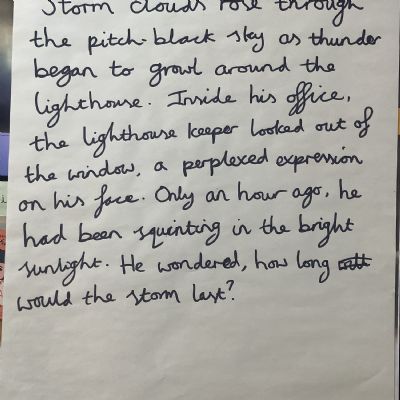 Storm clouds rose through
the pitch-black sky as thunder
began to growl around the
lighthouse. Inside his office,
the lighthouse keeper looked out of
the window, a perplexed expression
on his face. Only an hour ago, he
had been squinting in the bright
sunlight. He wondered, how long
would the storm last?